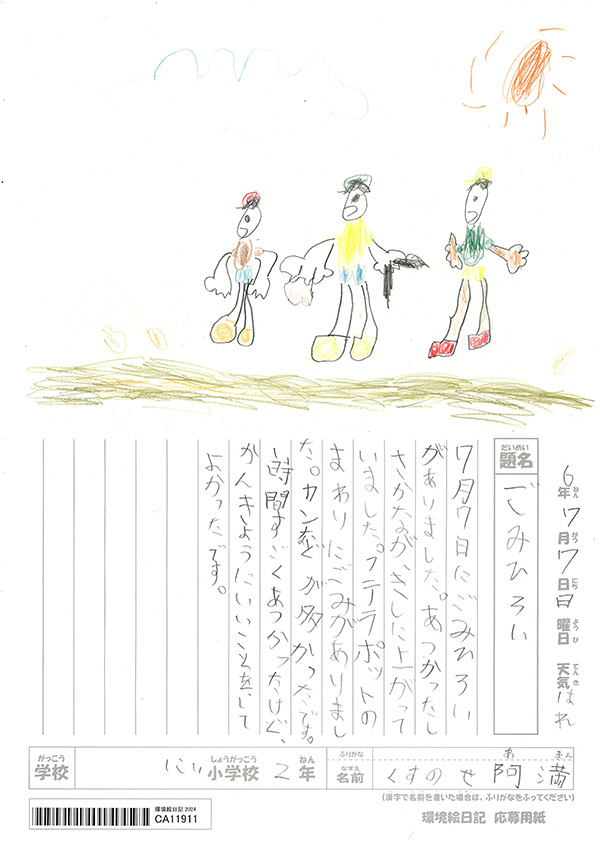 6年7月7日日曜日 天気はれ
ねん がつ にち ようび てんき
だいめい
題名
ごみひろい
7月7日にごみひろい
がありました。あつかったし
さかながきしに上がって
いました。フテラポットの
まわりにごみがありまし
た。カンなどが多かったです。
一時間すごくあつかったけど、
かんきょうにいいことをして
よかったです。
がっこう
学校
にい
しょうがっこう
小学校
2
ねん
年
ふりがな
なまえ
名前
あ まん
くすのせ 阿満
(漢字で名前を書いた場合は、ふりがなをふってください)
環境絵日記 2024
CA11911
環境絵日記 応募用紙